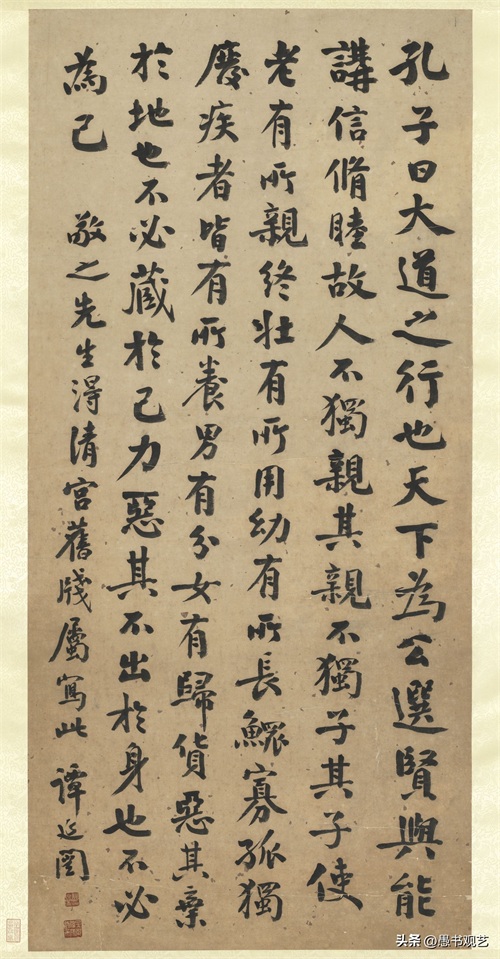 孔子曰大道之行也天下為公選賢與能
講信脩睦故人不獨親其親不獨子其子使
老有所親終壯有所用幼有所長鰥寡孤獨
廢疾者皆有所養男有分女有歸貨惡其棄
於地也不必藏於己力惡其不出於身也不必
為己 敬之先生得清宮舊牋屬寫此 譚延闓
头条 @愚书观艺